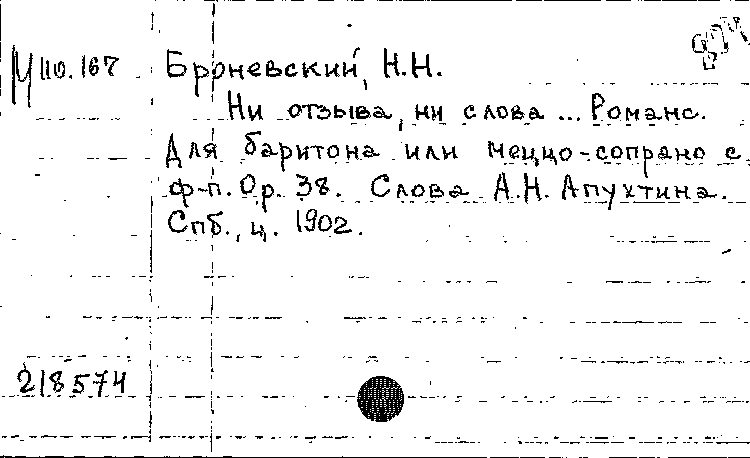 М 110.167
Броневский, Н.Н.
Ни отзыва, ни слова ... Романс.
Для баритона или меццо-сопрано с
ф-п. Op. 38. Слова А.Н. Апухтина.
Спб., ц. 1902.
218574